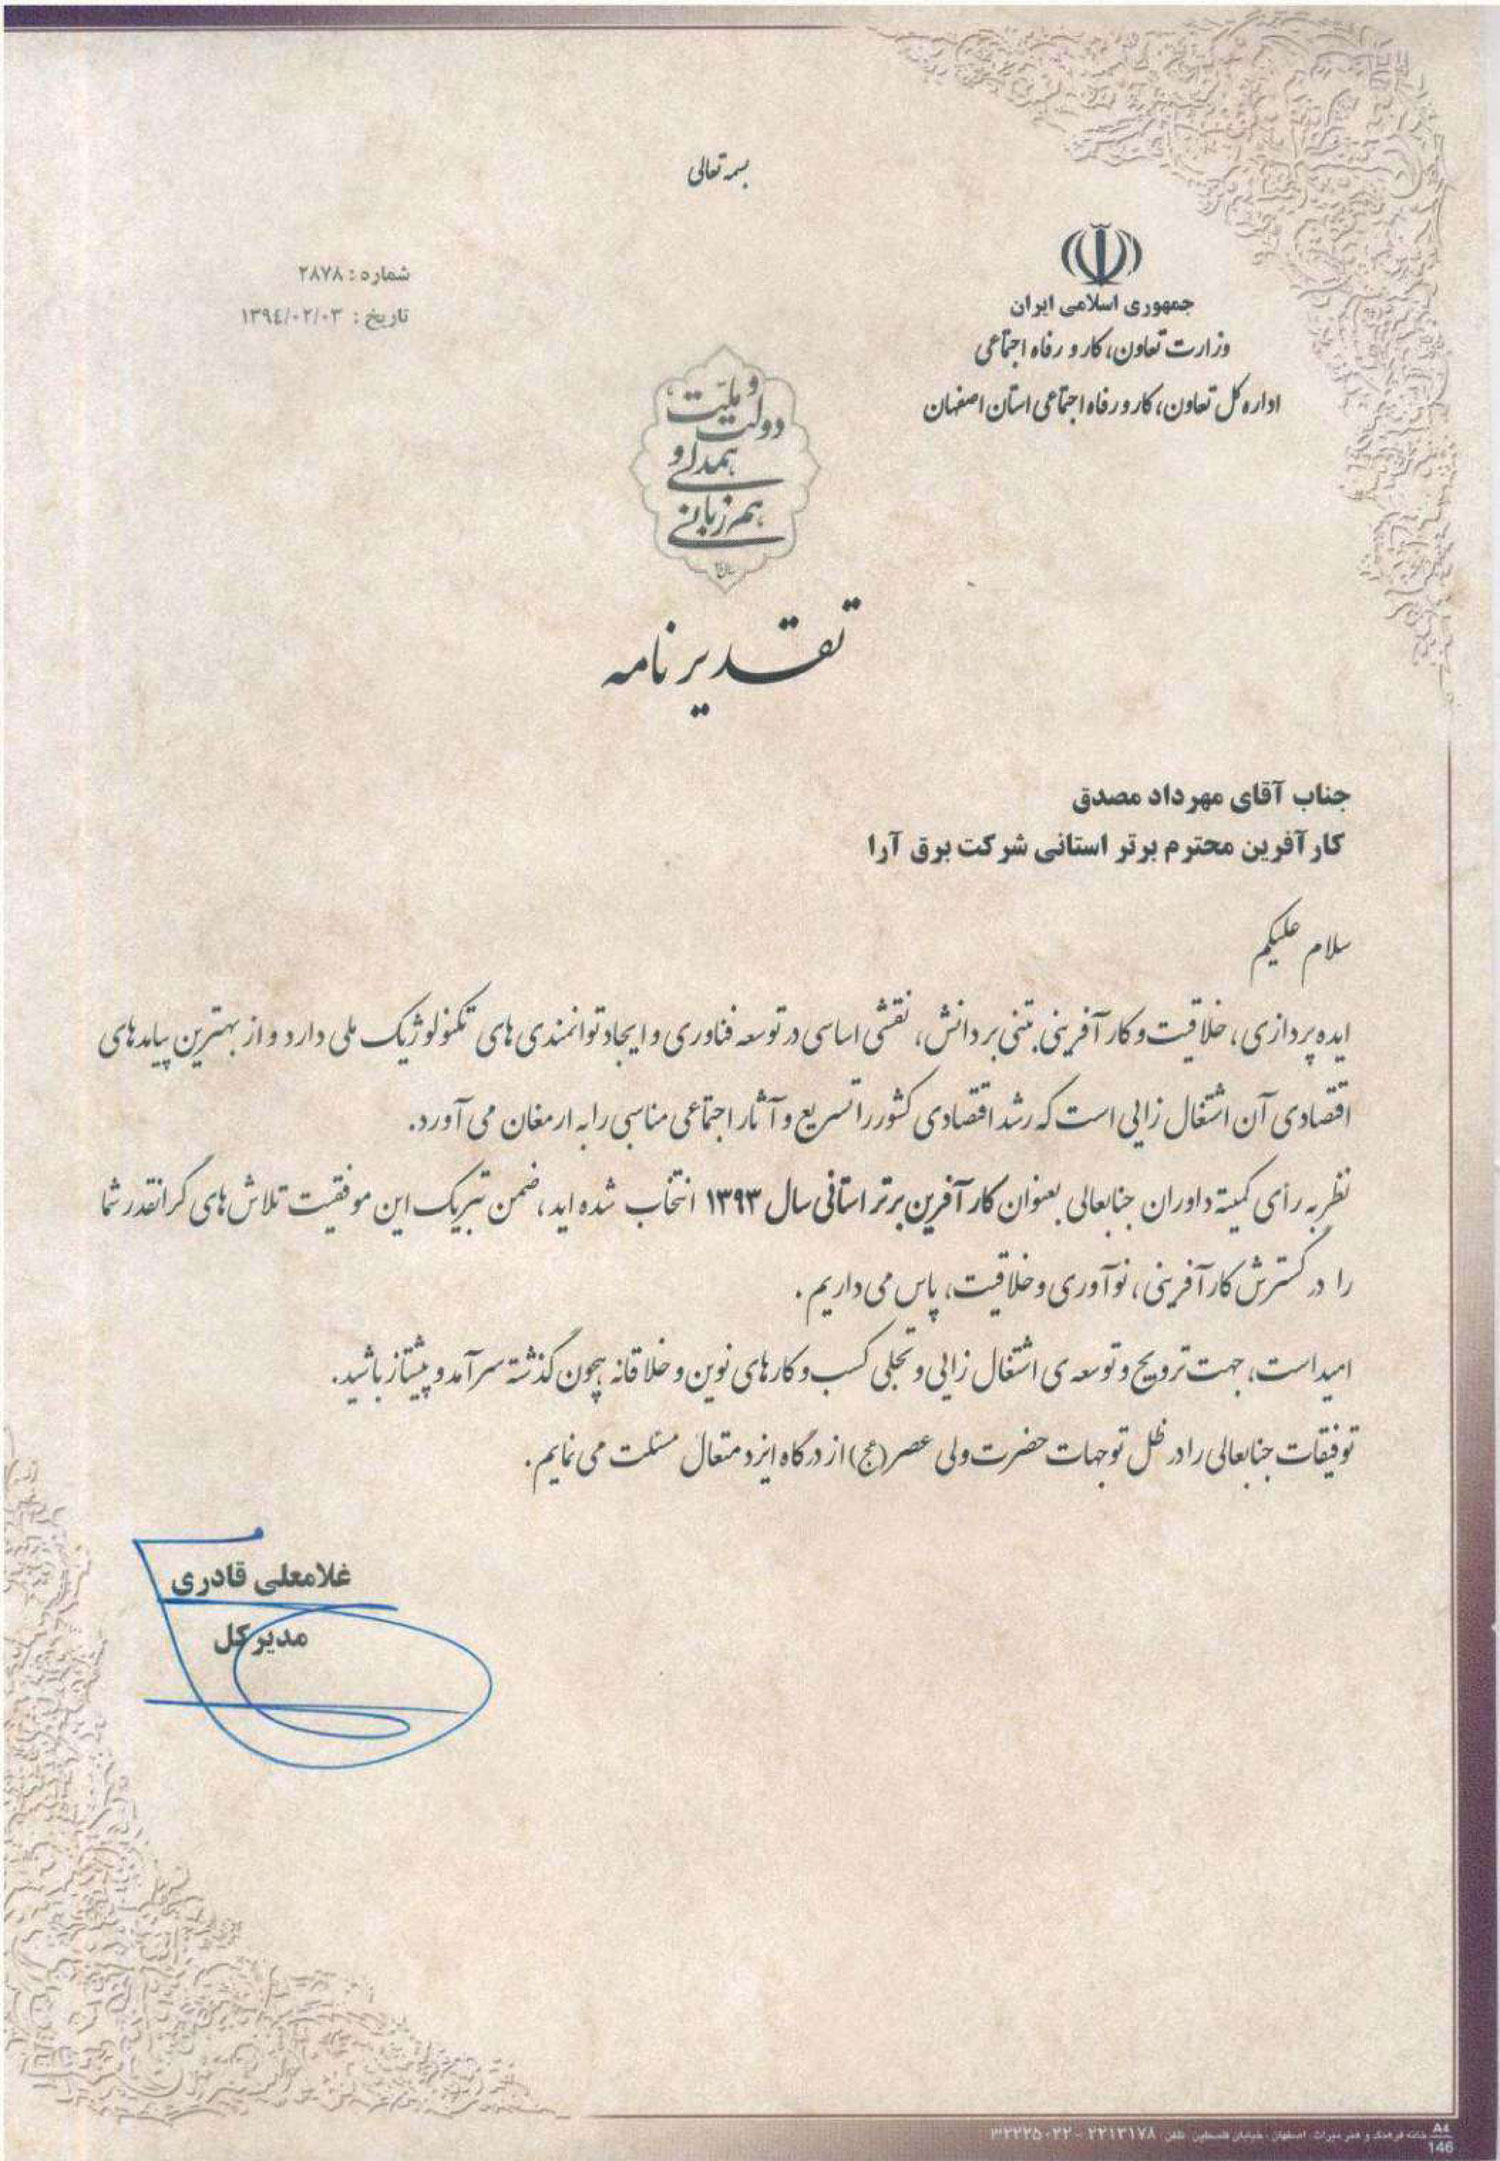 بسمه تعالی
جمهوری اسلامی ایران
وزارت تعاون، کار و رفاه اجتماعی
اداره کل تعاون، کار و رفاه اجتماعی استان اصفهان
شماره : ۲۸۷۸
تاریخ : ۱۳۹٤/۰۲/۰۳
دولت و ملت،
همدلی و
هم زبانی
تقدیرنامه
جناب آقای مهرداد مصدق
کارآفرین محترم برتر استانی شرکت برق آرا
سلام علیکم
ایده پردازی، خلاقیت و کارآفرینی مبتنی بر دانش، نقشی اساسی در توسعه فناوری و ایجاد توانمندی های تکنولوژیک ملی دارد و از بهترین پیامدهای
اقتصادی آن اشتغال زایی است که رشد اقتصادی کشور را تسریع و آثار اجتماعی مناسبی را به ارمغان می آورد.
نظر به رأی کمیته داوران جنابعالی بعنوان کارآفرین برتر استانی سال ۱۳۹۳ انتخاب شده اید، ضمن تبریک این موفقیت تلاش های گرانقدر شما
را در گسترش کارآفرینی، نوآوری و خلاقیت، پاس می داریم.
امید است، جهت ترویج و توسعه ی اشتغال زایی و تجلی کسب و کارهای نوین و خلاقانه همچون گذشته سرآمد و پیشتاز باشید.
توفیقات جنابعالی را در ظل توجهات حضرت ولی عصر (عج) از درگاه ایزد متعال مسئلت می نمایم.
غلامعلی قادری
مدیرکل
A4
146
خانه فرهنگ و هنر میراث. اصفهان. خیابان فلسطین. تلفن: ۲۲۱۳۱۷۸ - ۳۲۲۲۵۰۲۲